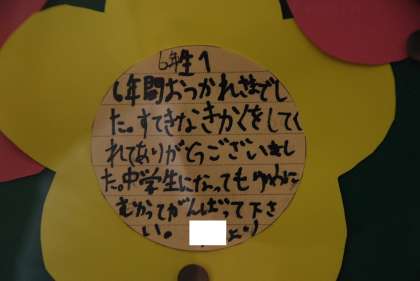 6年生へ
6年間おつかれさまでし
た。すてきなきかくをしてく
れてありがとうございまし
た。中学生になってもゆめに
むかってがんばって下さ
い。 より